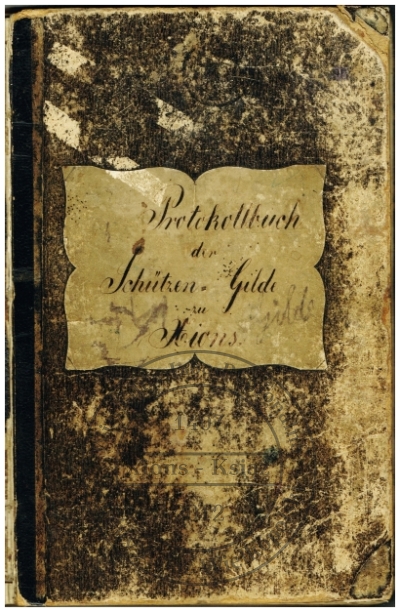 Protokollbuch
der
Schützen = Gilde
zu
Xions.
Gilde